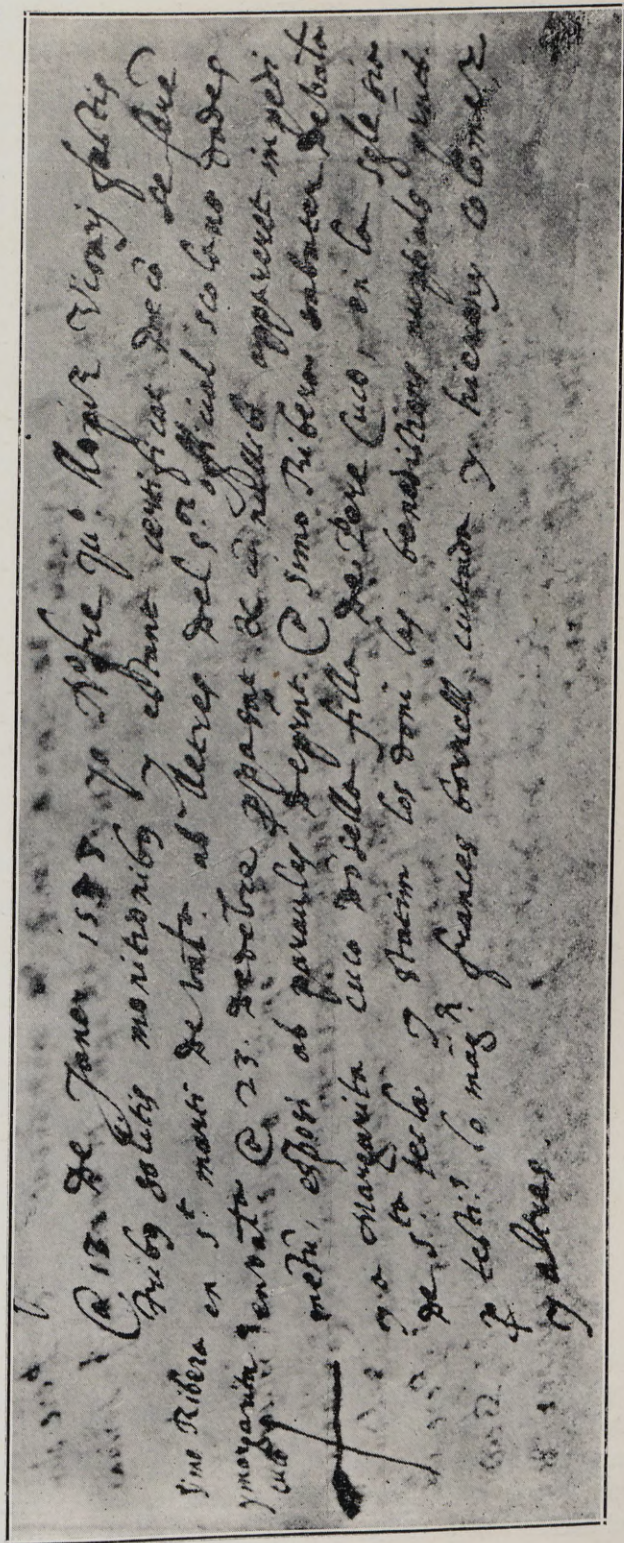 A 18 de Janer 1588 yo Nofre Juº Llopiz Vicari factis
tribus solitis monitionibus y estant certificat dec ā se fare
en st marti de vata ab lletres del s.or official scolano dades
en vata A 23 de debre ppasat & cū nullū appareret inpedi
metū, esposi ab paraules de prnt. A simo Ribera sabater de bata
y a Margarita cuco dōsella filla de Pere Cuco, en la sglesia
de s.ta tecla y statim los doni las beneditions nuptials prnt.
p testis lo magch frances borrell ciutada y hierony colomer
y altres.
simo Ribera
y margarita
cuco